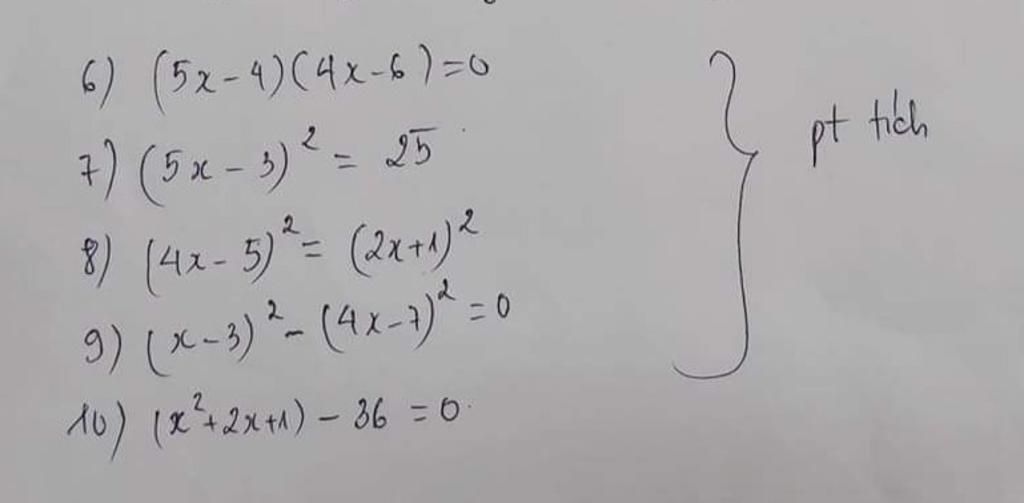 6) (5x-4)(4x-6)=0
7) (5x-3)² = 25
8) (4x-5)² = (2x+1)²
9) (x-3)² - (4x-7)² = 0
10) (x²+2x+1) - 36 = 0
pt tích